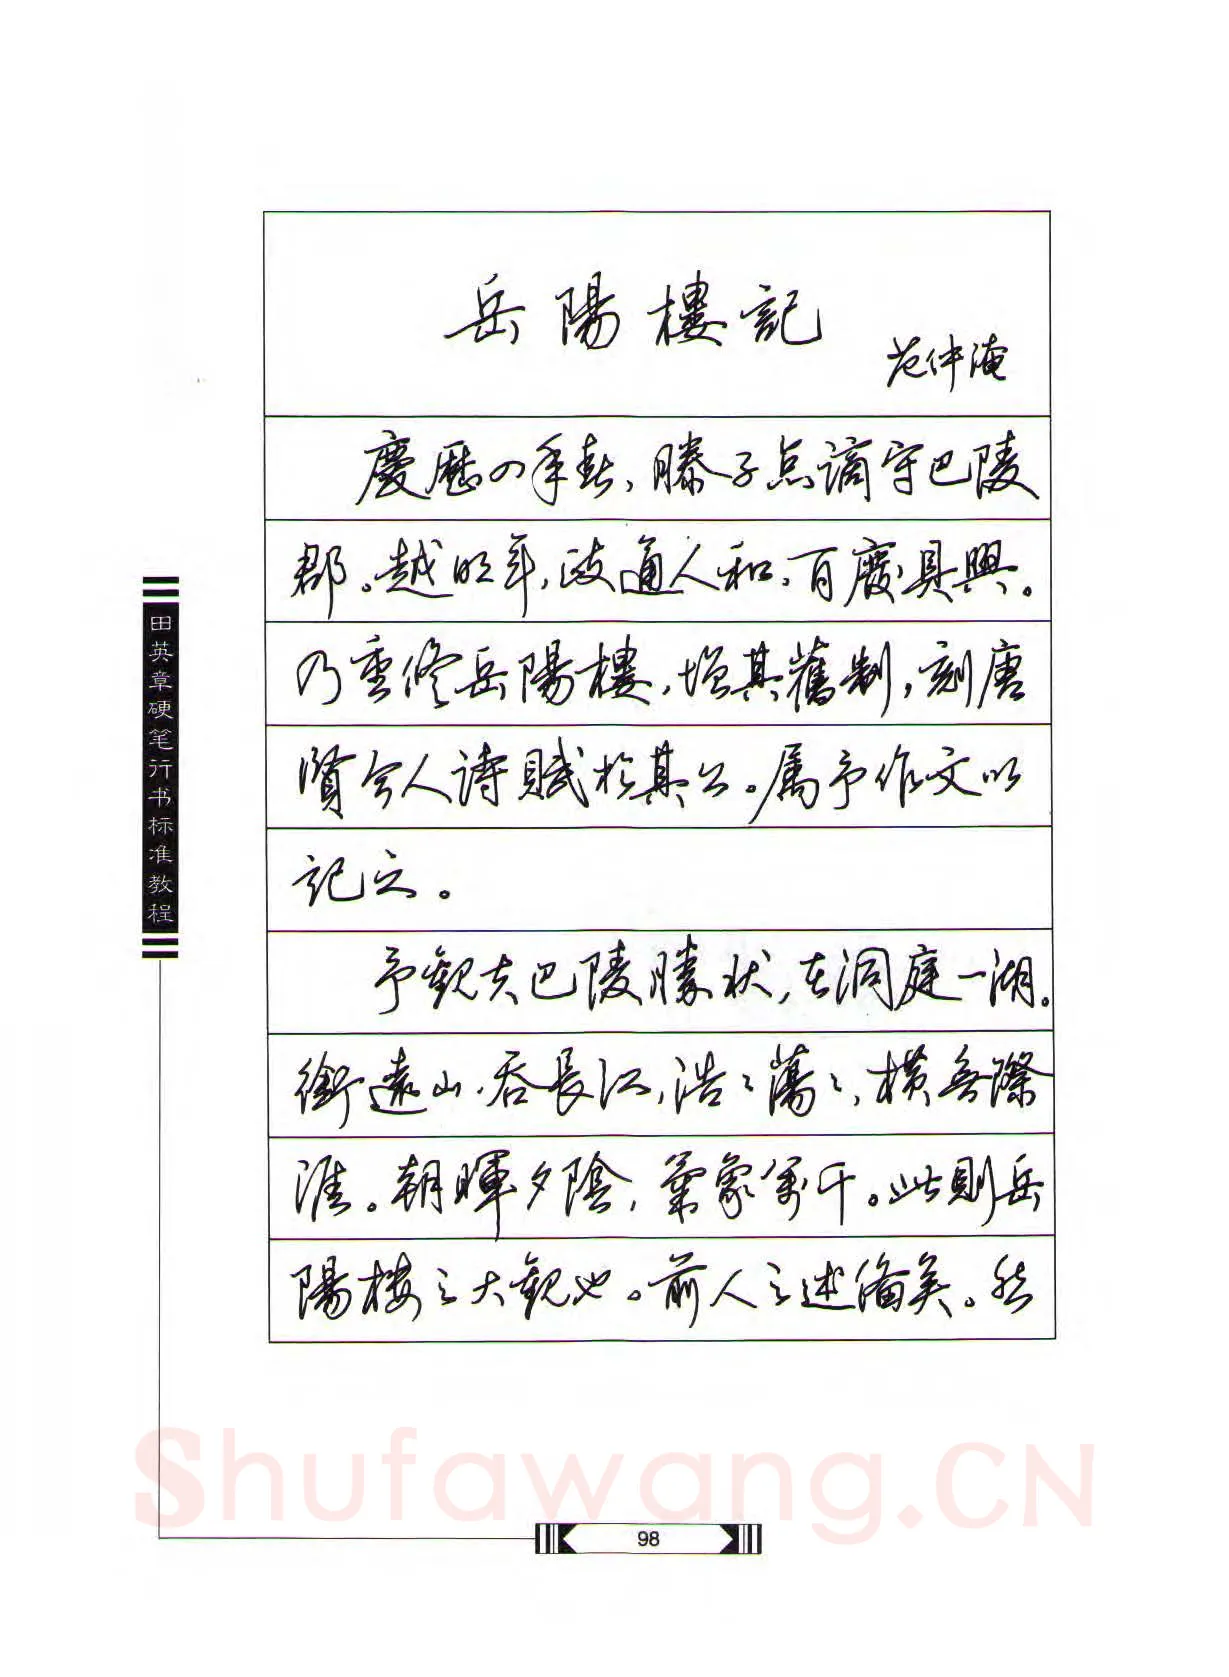 岳陽樓記
范仲淹
慶歷四年春,滕子京謫守巴陵
郡。越明年,政通人和,百廢具興。
乃重修岳陽樓,增其舊制,刻唐
賢今人詩賦於其上。属予作文以
記之。
予觀夫巴陵勝状,在洞庭一湖。
銜遠山,吞長江,浩〻蕩〻,横無際
涯。朝暉夕陰,氣象萬千。此則岳
陽樓之大觀也。前人之述備矣。然
田英章硬笔行书标准教程
Shufawang.CN
98